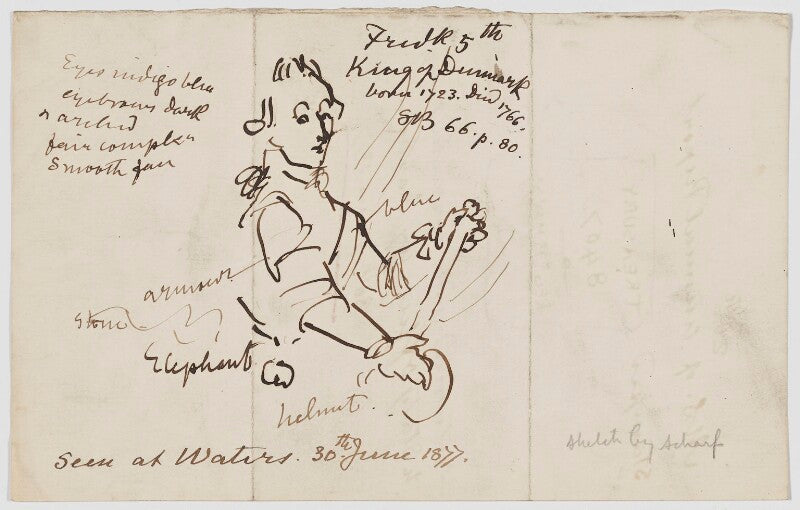 Eyes indigo blue
eyebrows dark
& arched
fair complexn
Smooth fair
Fredk 5th
King of Denmark
born 1723. Died 1766.
SB 66. p. 80.
blue
armour
Stone
Elephant
helmet.
Seen at Waters. 30th June 1877.
sketch by Scharf